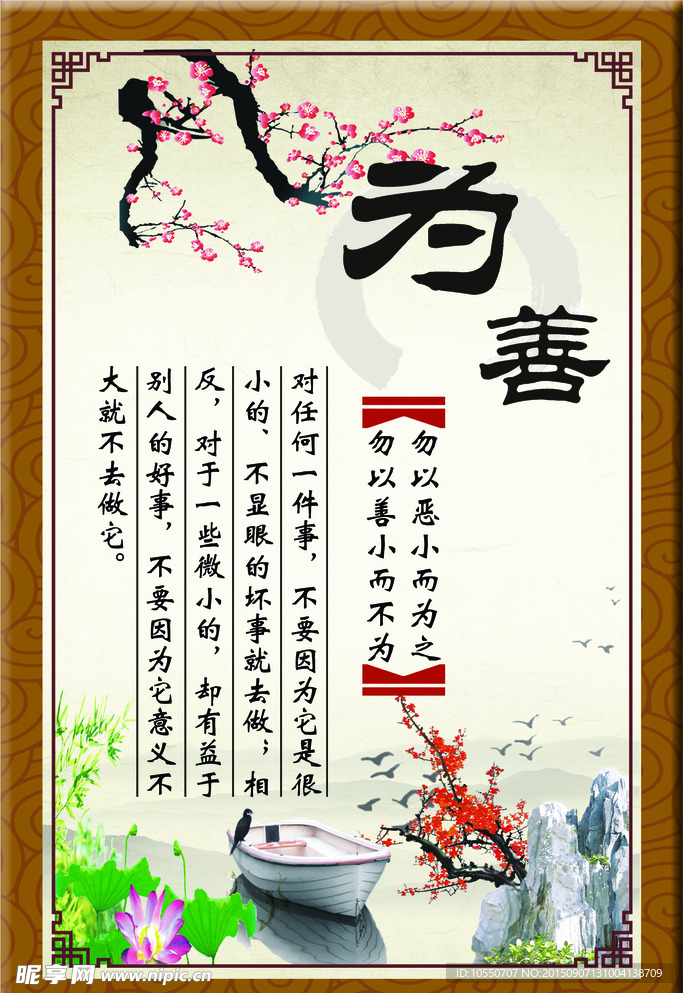 为善
勿以恶小而为之
勿以善小而不为
对任何一件事，不要因为它是很
小的、不显眼的坏事就去做；相
反，对于一些微小的，却有益于
别人的好事，不要因为它意义不
大就不去做它。
昵享网 www.nipic.cn
ID:10550707 NO:20150907131004138709